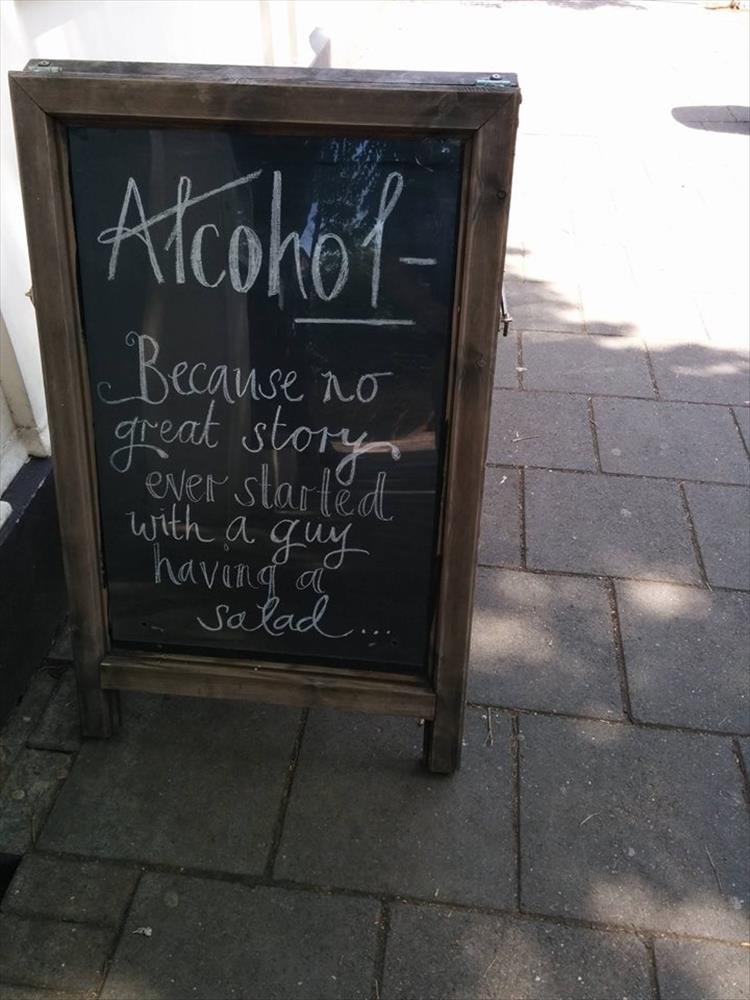 Alcohol-
Because no
great story
ever started
with a guy
having a
salad...